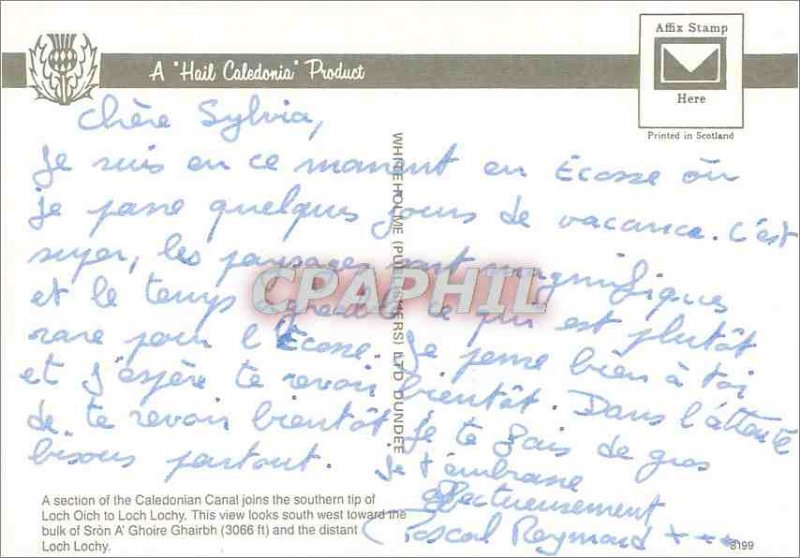 A "Hail Caledonia" Product
Affix Stamp
Here
Printed in Scotland
Chère Sylvia,
Je suis en ce moment en Ecosse où
je passe quelques jours de vacance. C'est
super, les paysages sont magnifiques
et le temps agréable ce qui est plutôt
rare pour l'Ecosse. Je pense bien à toi
et j'espère te revoir bientôt. Dans l'attente
de te revoir bientôt je te fais de gros
bisous partout. je t'embrasse
affectueusement
Pascal Reymond
WHITEHOLME (PUBLISHERS) LTD DUNDEE
CPAPHIL
A section of the Caledonian Canal joins the southern tip of
Loch Oich to Loch Lochy. This view looks south west toward the
bulk of Sròn A' Ghoire Ghairbh (3066 ft) and the distant
Loch Lochy.
8199